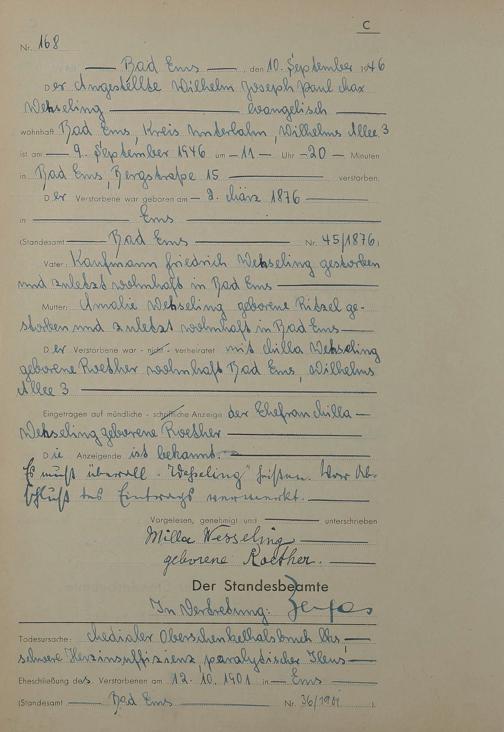 C
Nr. 168
Bad Ems, den 10. September 1946
Der Angestellte Wilhelm Joseph Paul Max
Wehseling evangelisch
wohnhaft Bad Ems, Kreis Unterlahn, Wilhelms Allee 3
ist am 9. September 1946 um 11 Uhr 20 Minuten
in Bad Ems, Bergstraße 15 verstorben.
Der Verstorbene war geboren am 2. März 1876
in Ems
(Standesamt Bad Ems Nr. 45/1876)
Vater: Kaufmann Friedrich Wehseling gestorben
und zuletzt wohnhaft in Bad Ems
Mutter: Amalie Wehseling geborene Ritzel ge-
storben und zuletzt wohnhaft in Bad Ems
Der Verstorbene war - nicht - verheiratet mit Milla Wehseling
geborene Roether wohnhaft Bad Ems, Wilhelms
Allee 3
Eingetragen auf mündliche - schriftliche Anzeige der Ehefrau Milla
Wehseling geborene Roether
Die Anzeigende ist bekannt.
Es muß überall "Weßseling" heißen. Vor Ab-
schluß des Eintrags vermerkt.
Vorgelesen, genehmigt und unterschrieben
Milla Wesseling
geborene Roether.
Der Standesbeamte
In Vertretung:
Todesursache: Medialer Oberschenkelhalsbruch lks,
schwere Herzinsuffizienz, paralytischer Ileus
Eheschließung des Verstorbenen am 12. 10. 1901 in Ems
(Standesamt Bad Ems Nr. 36/1901).